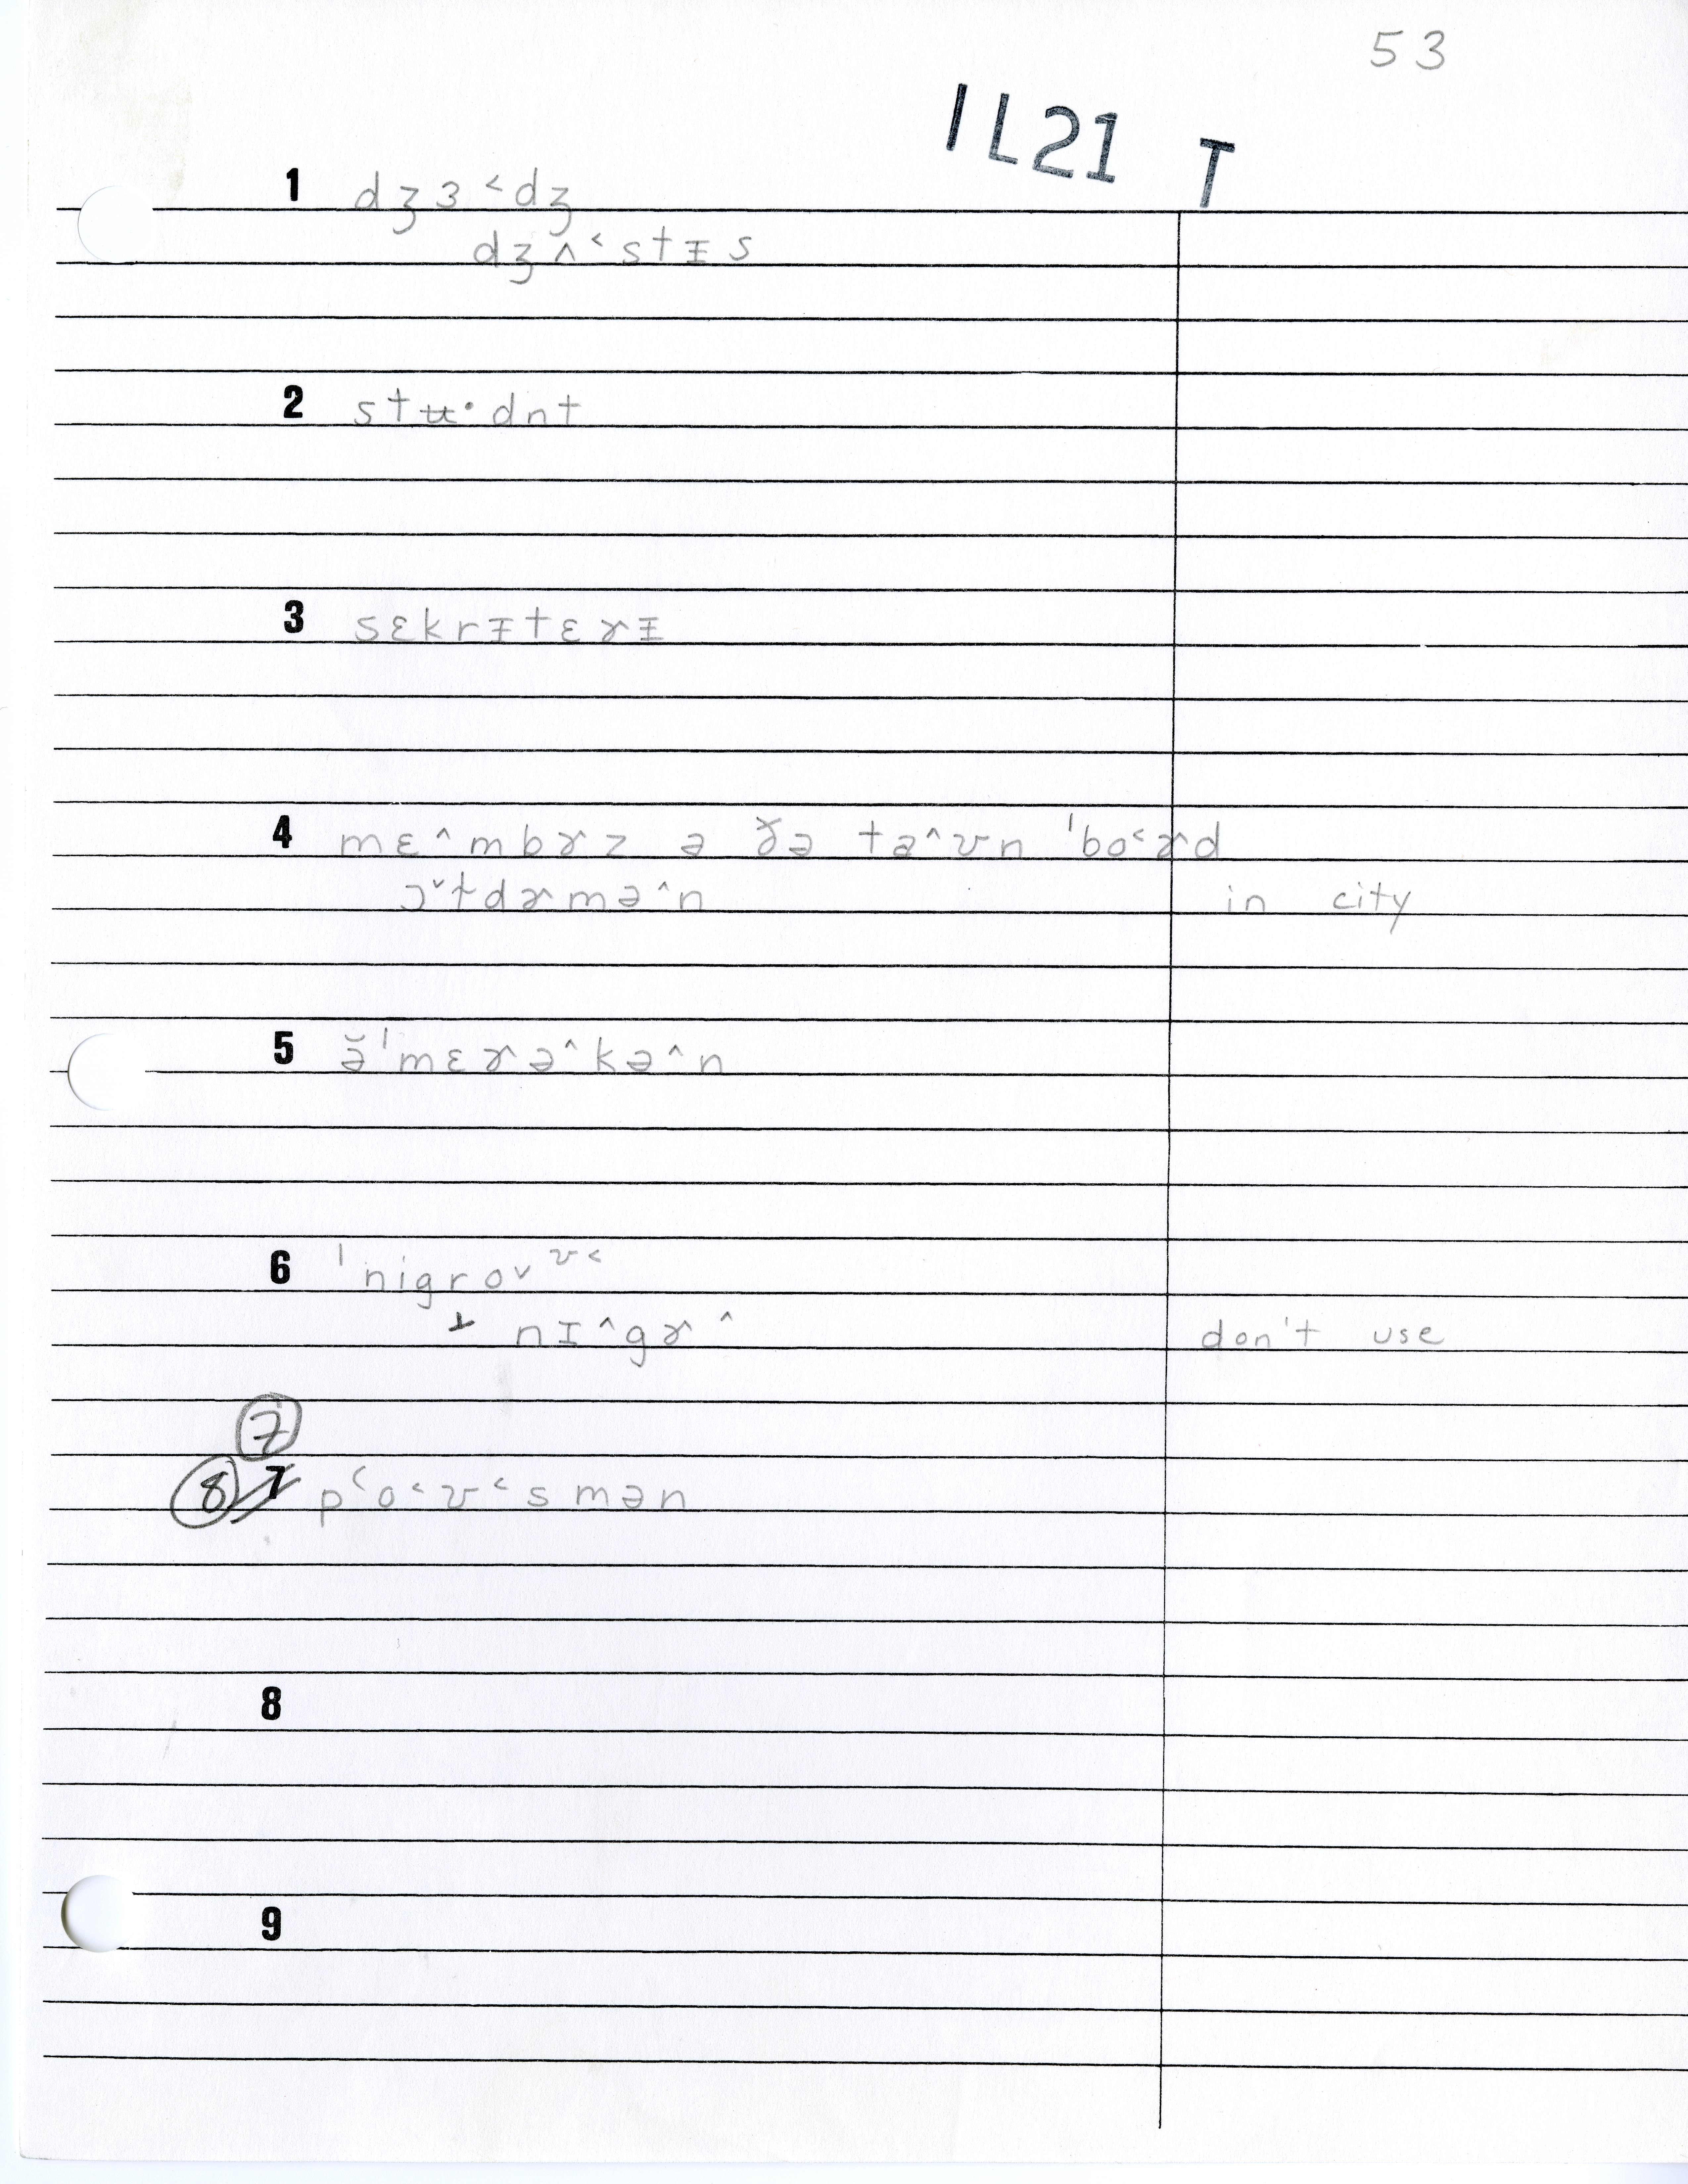 53
IL21 T
1 dʒɜ˂dʒ
dʒʌ˂stᵻs
2 stʉ·dnt
3 sɛkrᵻtɛɚᵻ
4 mɛ^mbɚz ə ðə ta^ʊn ˈbo˂ɚd
ɔ˅ɫdɚmə^n in city
5 ə̆ˈmɛɚə^kə^n
6 ˈnigro˅ʊ˂
nɪ^gɚ^ don't use
7
8 7 p˂o˂ʊ˂smən
8
9